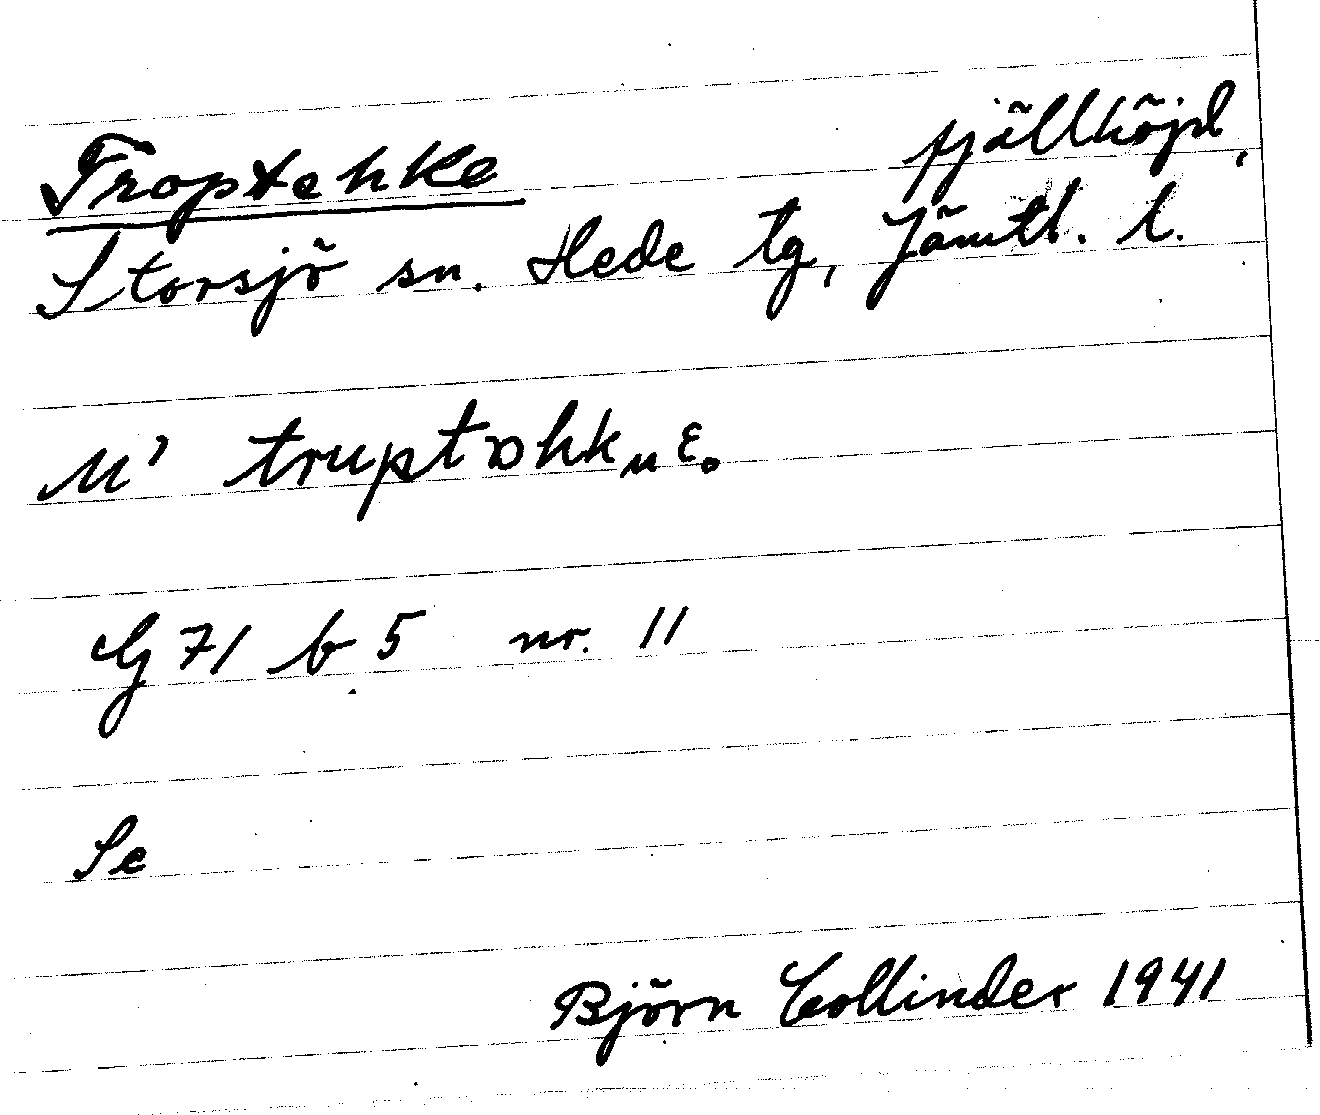 Troptehke fjällhöjd,
Storsjö sn. Hede tg, Jämtl. l.
G 71 b 5 nr. 11
Se
Björn Collinder 1941